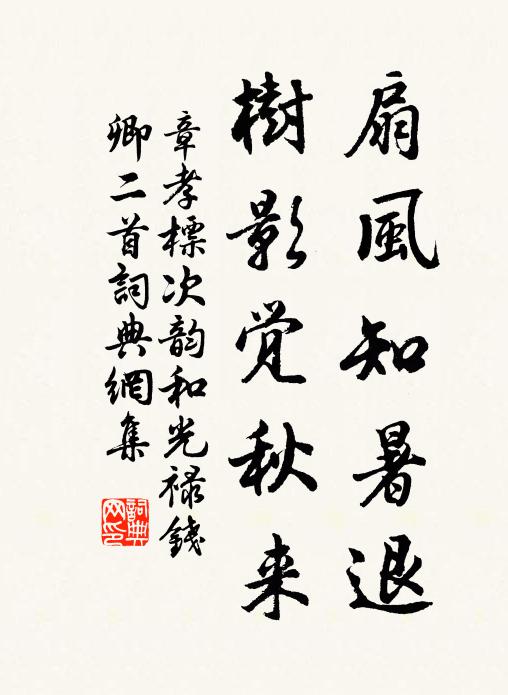 扇風知暑退
樹影覚秋来
章孝標次韵和光禄錢
卿二首詞典網集
詞典網印